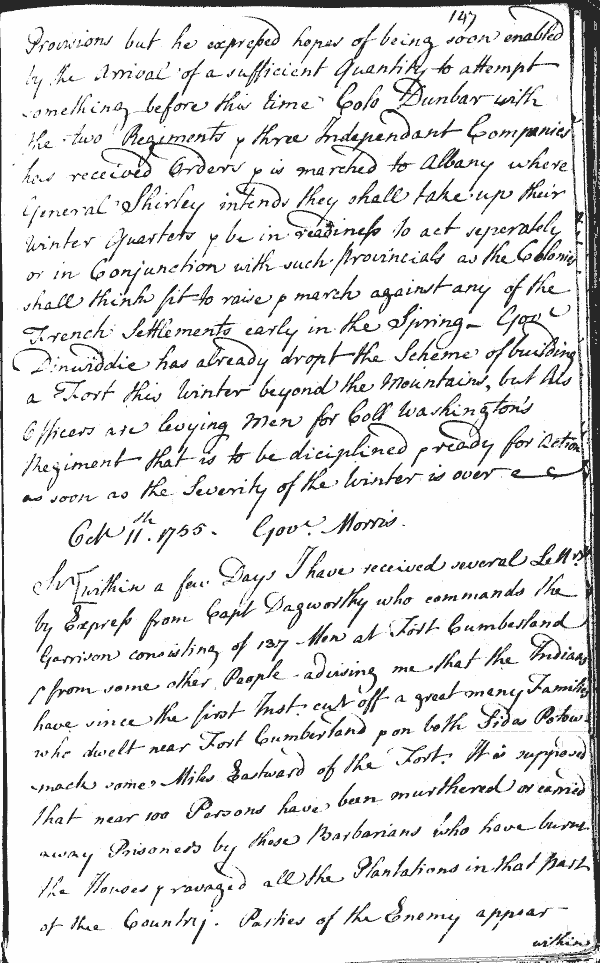 147
Provisions but he expressed hopes of being soon enabled
by the Arrival of a sufficient Quantity to attempt
something before this time Colo Dunbar with
the two Regiments & three Independant Companies
has received Orders & is marched to Albany where
General Shirley intends they shall take up their
Winter Quarters & be in readiness to act seperately
or in Conjunction with such Provincials as the Colonies
shall think fit to raise & march against any of the
French Settlements early in the Spring - Govr
Dinwiddie has already dropt the Scheme of building
a Fort this Winter beyond the Mountains, but his
Officers are levying Men for Coll Washington's
Regiment that is to be diciplined & ready for Action
as soon as the Severity of the Winter is over
Octr 11th. 1755. Govr. Morris.
Sir [within a few Days I have received several Lettrs
by Express from Capt Dagworthy who commands the
Garrison consisting of 137 Men at Fort Cumberland
& from some other People advising me that the Indians
have since the first Inst. cut off a great many Families
who dwelt near Fort Cumberland & on both Sides Potow-
-mack some Miles Eastward of the Fort. It is supposed
that near 100 Persons have been murthered or carried
away Prisoners by these Barbarians who have burnt
the Houses & ravaged all the Plantations in that part
of the Country. Parties of the Enemy appear
within